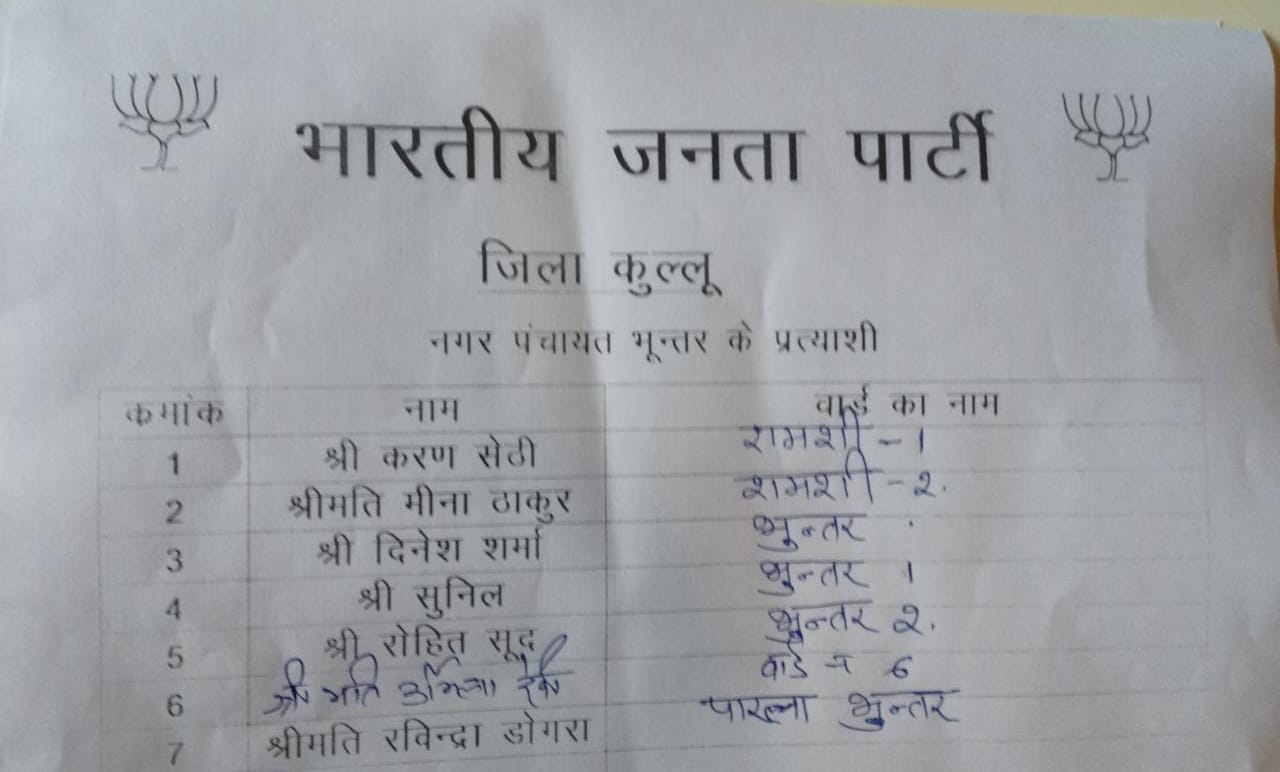 भारतीय जनता पार्टी
जिला कुल्लू
नगर पंचायत भून्तर के प्रत्याशी
कमांक नाम वार्ड का नाम
1 श्री करण सेठी शमशी - 1
2 श्रीमति मीना ठाकुर शमशी - २.
3 श्री दिनेश शर्मा भुन्तर .
4 श्री सुनिल भुन्तर 1
5 श्री रोहित सूद भुन्तर २.
6 श्री मति उर्मिला देवी वार्ड न 6
7 श्रीमति रविन्द्रा डोगरा पारला भुन्तर